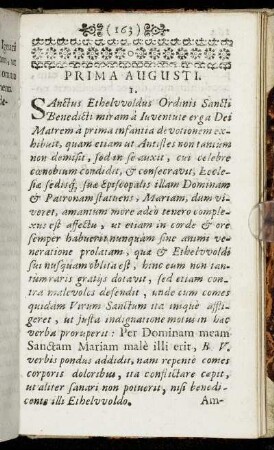 (163)
PRIMA AUGUSTI.
I.
SAnctus Ethelvvoldus Ordinis Sancti
Benedicti miram à Iuventute erga Dei
Matrem à prima infantia devotionem ex-
hibuit, quam etiam ut Antistes non tantùm
non demisit, sed in se auxit, cui celebre
cœnobium condidit, & consecravit, Eccle-
siæ sedisq́; suæ Episcopatis illam Dominam
& Patronam statuens, Mariam, dum vi-
veret, amantum more adeò tenero comple-
xus est affectu, ut etiam in corde & ore
semper habuerit nunquam sine animi ve-
neratione prolatam, quæ & Ethelvvoldi
sui nusquam oblita est, hinc eum non tan-
tùm raris gratijs dotavit, sed etiam con-
tra malevolos defendit, unde cum comes
quidam Virum Sanctum ita iniquè affli-
geret, ut justa indignatione motus in hæc
verba proruperit: Per Dominam meam
Sanctam Mariam malè illi erit, B. V.
verbis pondus addidit, nam repente comes
corporis doloribus, ita conflictare cæpit,
ut aliter sanari non potuerit, nisi benedi-
cente illi Ethelvvoldo.
Am-